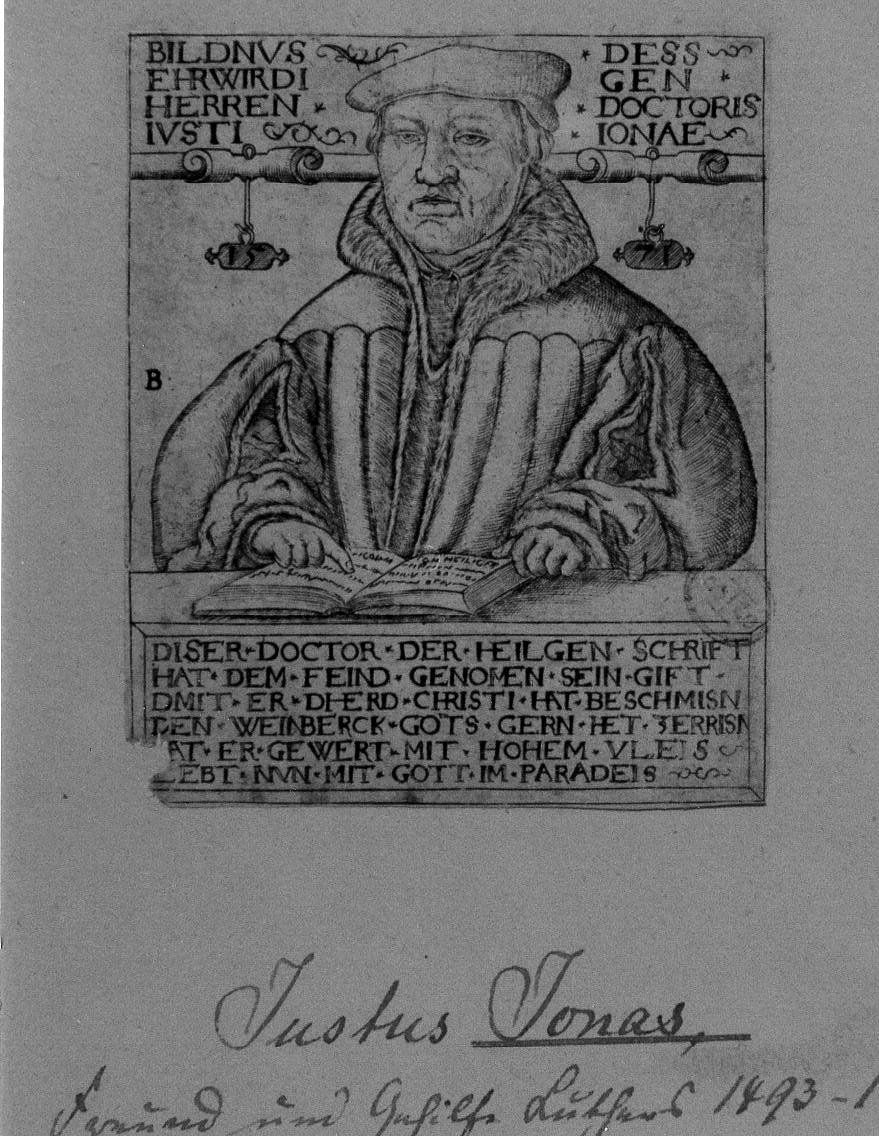 BILDNVS * DESS
EHRWIRDI GEN *
HERREN * * DOCTORIS
IVSTI * IONAE
15 71
B
DISER * DOCTOR * DER * HEILGEN * SCHRIFT
HAT * DEM * FEIND * GENOMEN * SEIN * GIFT *
DMIT * ER * DHERD * CHRISTI * HAT * BESCHMISN
DEN * WEINBERCK * GOTS * GERN * HET * ZERRISN
AT * ER * GEWERT * MIT * HOHEM * VLEIS
EBT * NVN * MIT * GOTT * IM * PARADEIS
Justus Jonas,
Freund und Gehilfe Luthers 1493 - 1